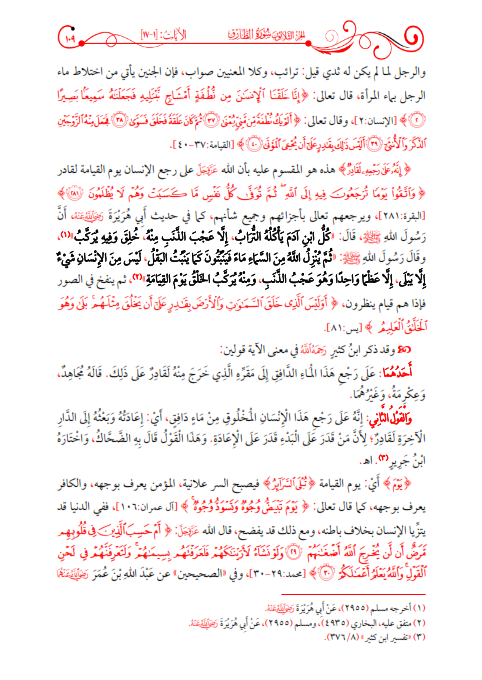 الجزء الثلاثون سُورَةُ الطَّارِقِ
الآيات: [١-١٧]
١٠٩
والرجل لما لم يكن له ثدي قيل: ترائب، وكلا المعنيين صواب، فإن الجنين يأتي من اختلاط ماء
الرجل بماء المرأة، قال تعالى: ﴿ إِنَّا خَلَقْنَا الْإِنسَٰنَ مِن نُّطْفَةٍ أَمْشَاجٍ نَّبْتَلِيهِ فَجَعَلْنَٰهُ سَمِيعًا بَصِيرًا
﴿٢﴾ ﴾ [الإنسان:٢]، وقال تعالى: ﴿ أَلَمْ يَكُ نُطْفَةً مِّن مَّنِيٍّ يُمْنَىٰ ﴿٣٧﴾ ثُمَّ كَانَ عَلَقَةً فَخَلَقَ فَسَوَّىٰ ﴿٣٨﴾ فَجَعَلَ مِنْهُ الزَّوْجَيْنِ
الذَّكَرَ وَالْأُنثَىٰ ﴿٣٩﴾ أَلَيْسَ ذَٰلِكَ بِقَٰدِرٍ عَلَىٰ أَن يُحْۧيِ الْمَوْتَىٰ ﴿٤٠﴾ ﴾ [القيامة:٣٧-٤٠].
﴿ إِنَّهُ عَلَىٰ رَجْعِهِ لَقَادِرٌ ﴾ هذه هو المقسوم عليه بأن الله عَزَّوَجَلَّ على رجع الإنسان يوم القيامة لقادر
﴿ وَاتَّقُوا يَوْمًا تُرْجَعُونَ فِيهِ إِلَى اللَّهِ ثُمَّ تُوَفَّىٰ كُلُّ نَفْسٍ مَّا كَسَبَتْ وَهُمْ لَا يُظْلَمُونَ ﴿٢٨١﴾ ﴾
[البقرة:٢٨١]، ويرجعهم تعالى بأجزائهم وجميع شأنهم، كما في حديث أَبِي هُرَيْرَةَ رَضِيَ اللَّهُ عَنْهُ، أَنَّ
رَسُولَ اللهِ ﷺ، قَالَ: «كُلُّ ابْنِ آدَمَ يَأْكُلُهُ التُّرَابُ، إِلَّا عَجْبَ الذَّنَبِ مِنْهُ، خُلِقَ وَفِيهِ يُرَكَّبُ»(١)،
وقال رَسُولُ اللهِ ﷺ: «ثُمَّ يُنْزِلُ اللهُ مِنَ السَّمَاءِ مَاءً فَيَنْبُتُونَ كَمَا يَنْبُتُ البَقْلُ، لَيْسَ مِنَ الإِنْسَانِ شَيْءٌ
إِلَّا يَبْلَى، إِلَّا عَظْمًا وَاحِدًا وَهُوَ عَجْبُ الذَّنَبِ، وَمِنْهُ يُرَكَّبُ الخَلْقُ يَوْمَ القِيَامَةِ»(٢)، ثم ينفخ في الصور
فإذا هم قيام ينظرون، ﴿ أَوَلَيْسَ الَّذِي خَلَقَ السَّمَٰوَٰتِ وَالْأَرْضَ بِقَٰدِرٍ عَلَىٰ أَن يَخْلُقَ مِثْلَهُم ۚ بَلَىٰ وَهُوَ
الْخَلَّٰقُ الْعَلِيمُ ﴾ [يس:٨١].
وقد ذكر ابنُ كثيرٍ رَحِمَهُ اللَّهُ في معنى الآية قولين:
أَحَدُهُمَا: عَلَى رَجْعِ هَذَا الْمَاءِ الدَّافِقِ إِلَى مَقَرِّهِ الَّذِي خَرَجَ مِنْهُ لَقَادِرٌ عَلَى ذَلِكَ. قَالَهُ مُجَاهِدٌ،
وَعِكْرِمَةُ، وَغَيْرُهُمَا.
وَالْقَوْلُ الثَّانِي: إِنَّهُ عَلَى رَجْعِ هَذَا الْإِنْسَانِ الْمَخْلُوقِ مِنْ مَاءٍ دَافِقٍ، أَيْ: إِعَادَتُهُ وَبَعْثُهُ إِلَى الدَّارِ
الْآخِرَةِ لَقَادِرٌ؛ لِأَنَّ مَنْ قَدَرَ عَلَى الْبَدْءِ قَدَرَ عَلَى الْإِعَادَةِ. وَهَذَا الْقَوْلُ قَالَ بِهِ الضَّحَّاكُ، وَاخْتَارَهُ
ابْنُ جَرِيرٍ(٣). اهـ.
﴿ يَوْمَ ﴾ أَيْ: يوم القيامة ﴿ تُبْلَى السَّرَائِرُ ﴾ فيصبح السر علانية، المؤمن يعرف بوجهه، والكافر
يعرف بوجهه، كما قال تعالى: ﴿ يَوْمَ تَبْيَضُّ وُجُوهٌ وَتَسْوَدُّ وُجُوهٌ ﴾ [آل عمران:١٠٦]، ففي الدنيا قد
يتزيَّا الإنسان بخلاف باطنه، ومع ذلك قد يفضح، قال الله عَزَّوَجَلَّ: ﴿ أَمْ حَسِبَ الَّذِينَ فِي قُلُوبِهِم
مَّرَضٌ أَن لَّن يُخْرِجَ اللَّهُ أَضْغَٰنَهُمْ ﴿٢٩﴾ وَلَوْ نَشَاءُ لَأَرَيْنَٰكَهُمْ فَلَعَرَفْتَهُم بِسِيمَٰهُمْ ۚ وَلَتَعْرِفَنَّهُمْ فِي لَحْنِ
الْقَوْلِ ۚ وَاللَّهُ يَعْلَمُ أَعْمَٰلَكُمْ ﴿٣٠﴾ ﴾ [محمد:٢٩-٣٠]، وفي «الصحيحين» عن عَبْدَ اللهِ بْنَ عُمَرَ رَضِيَ اللَّهُ عَنْهُمَا
(١) أخرجه مسلم (٢٩٥٥)، عَنْ أَبِي هُرَيْرَةَ رَضِيَ اللَّهُ عَنْهُ.
(٢) متفق عليه، البخاري (٤٩٣٥)، ومسلم (٢٩٥٥)، عَنْ أَبِي هُرَيْرَةَ رَضِيَ اللَّهُ عَنْهُ.
(٣) «تفسير ابن كثير» (٨/ ٣٧٦).